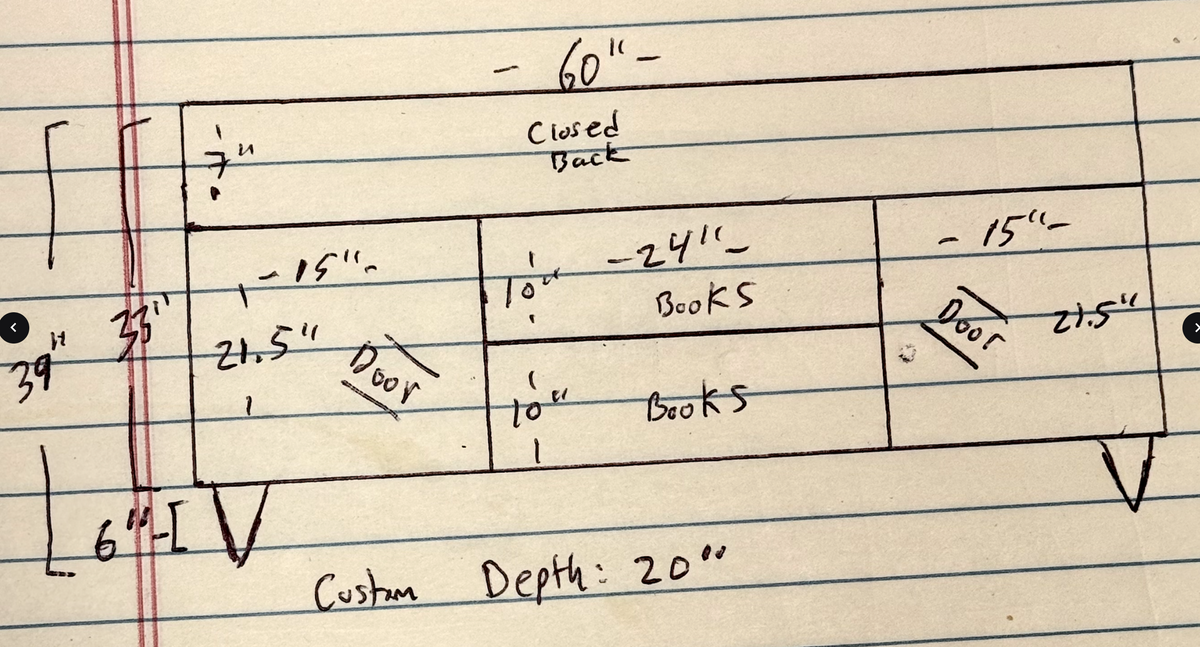 - 60" -
Closed
Back
7"
- 15" -
21.5"
Door
- 24" -
10"
Books
10"
Books
- 15" -
Door
21.5"
39"
33"
6"
Custom Depth: 20"